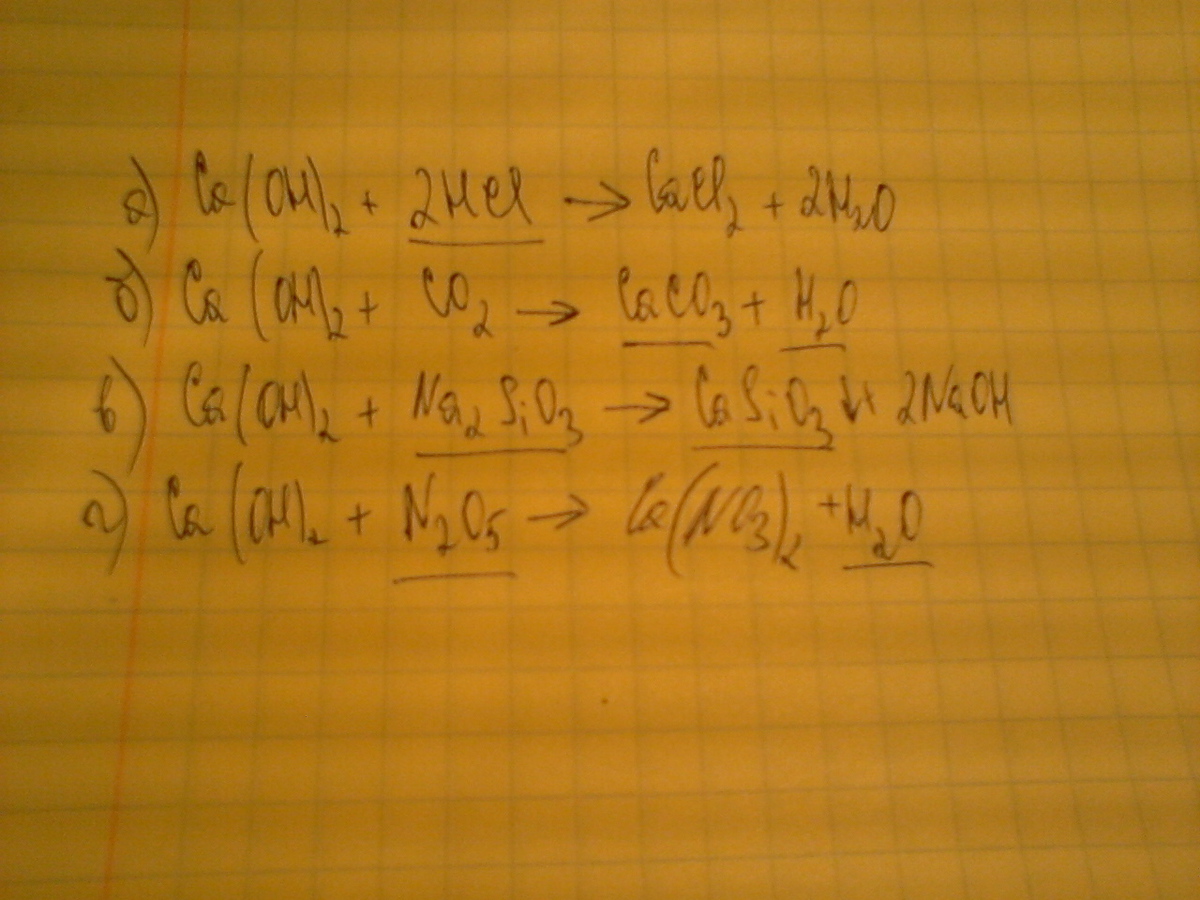 а) Ca(OH)₂ + 2HCl → CaCl₂ + 2H₂O
б) Ca(OH)₂ + CO₂ → CaCO₃ + H₂O
в) Ca(OH)₂ + Na₂SiO₃ → CaSiO₃↓ + 2NaOH
г) Ca(OH)₂ + N₂O₅ → Ca(NO₃)₂ + H₂O